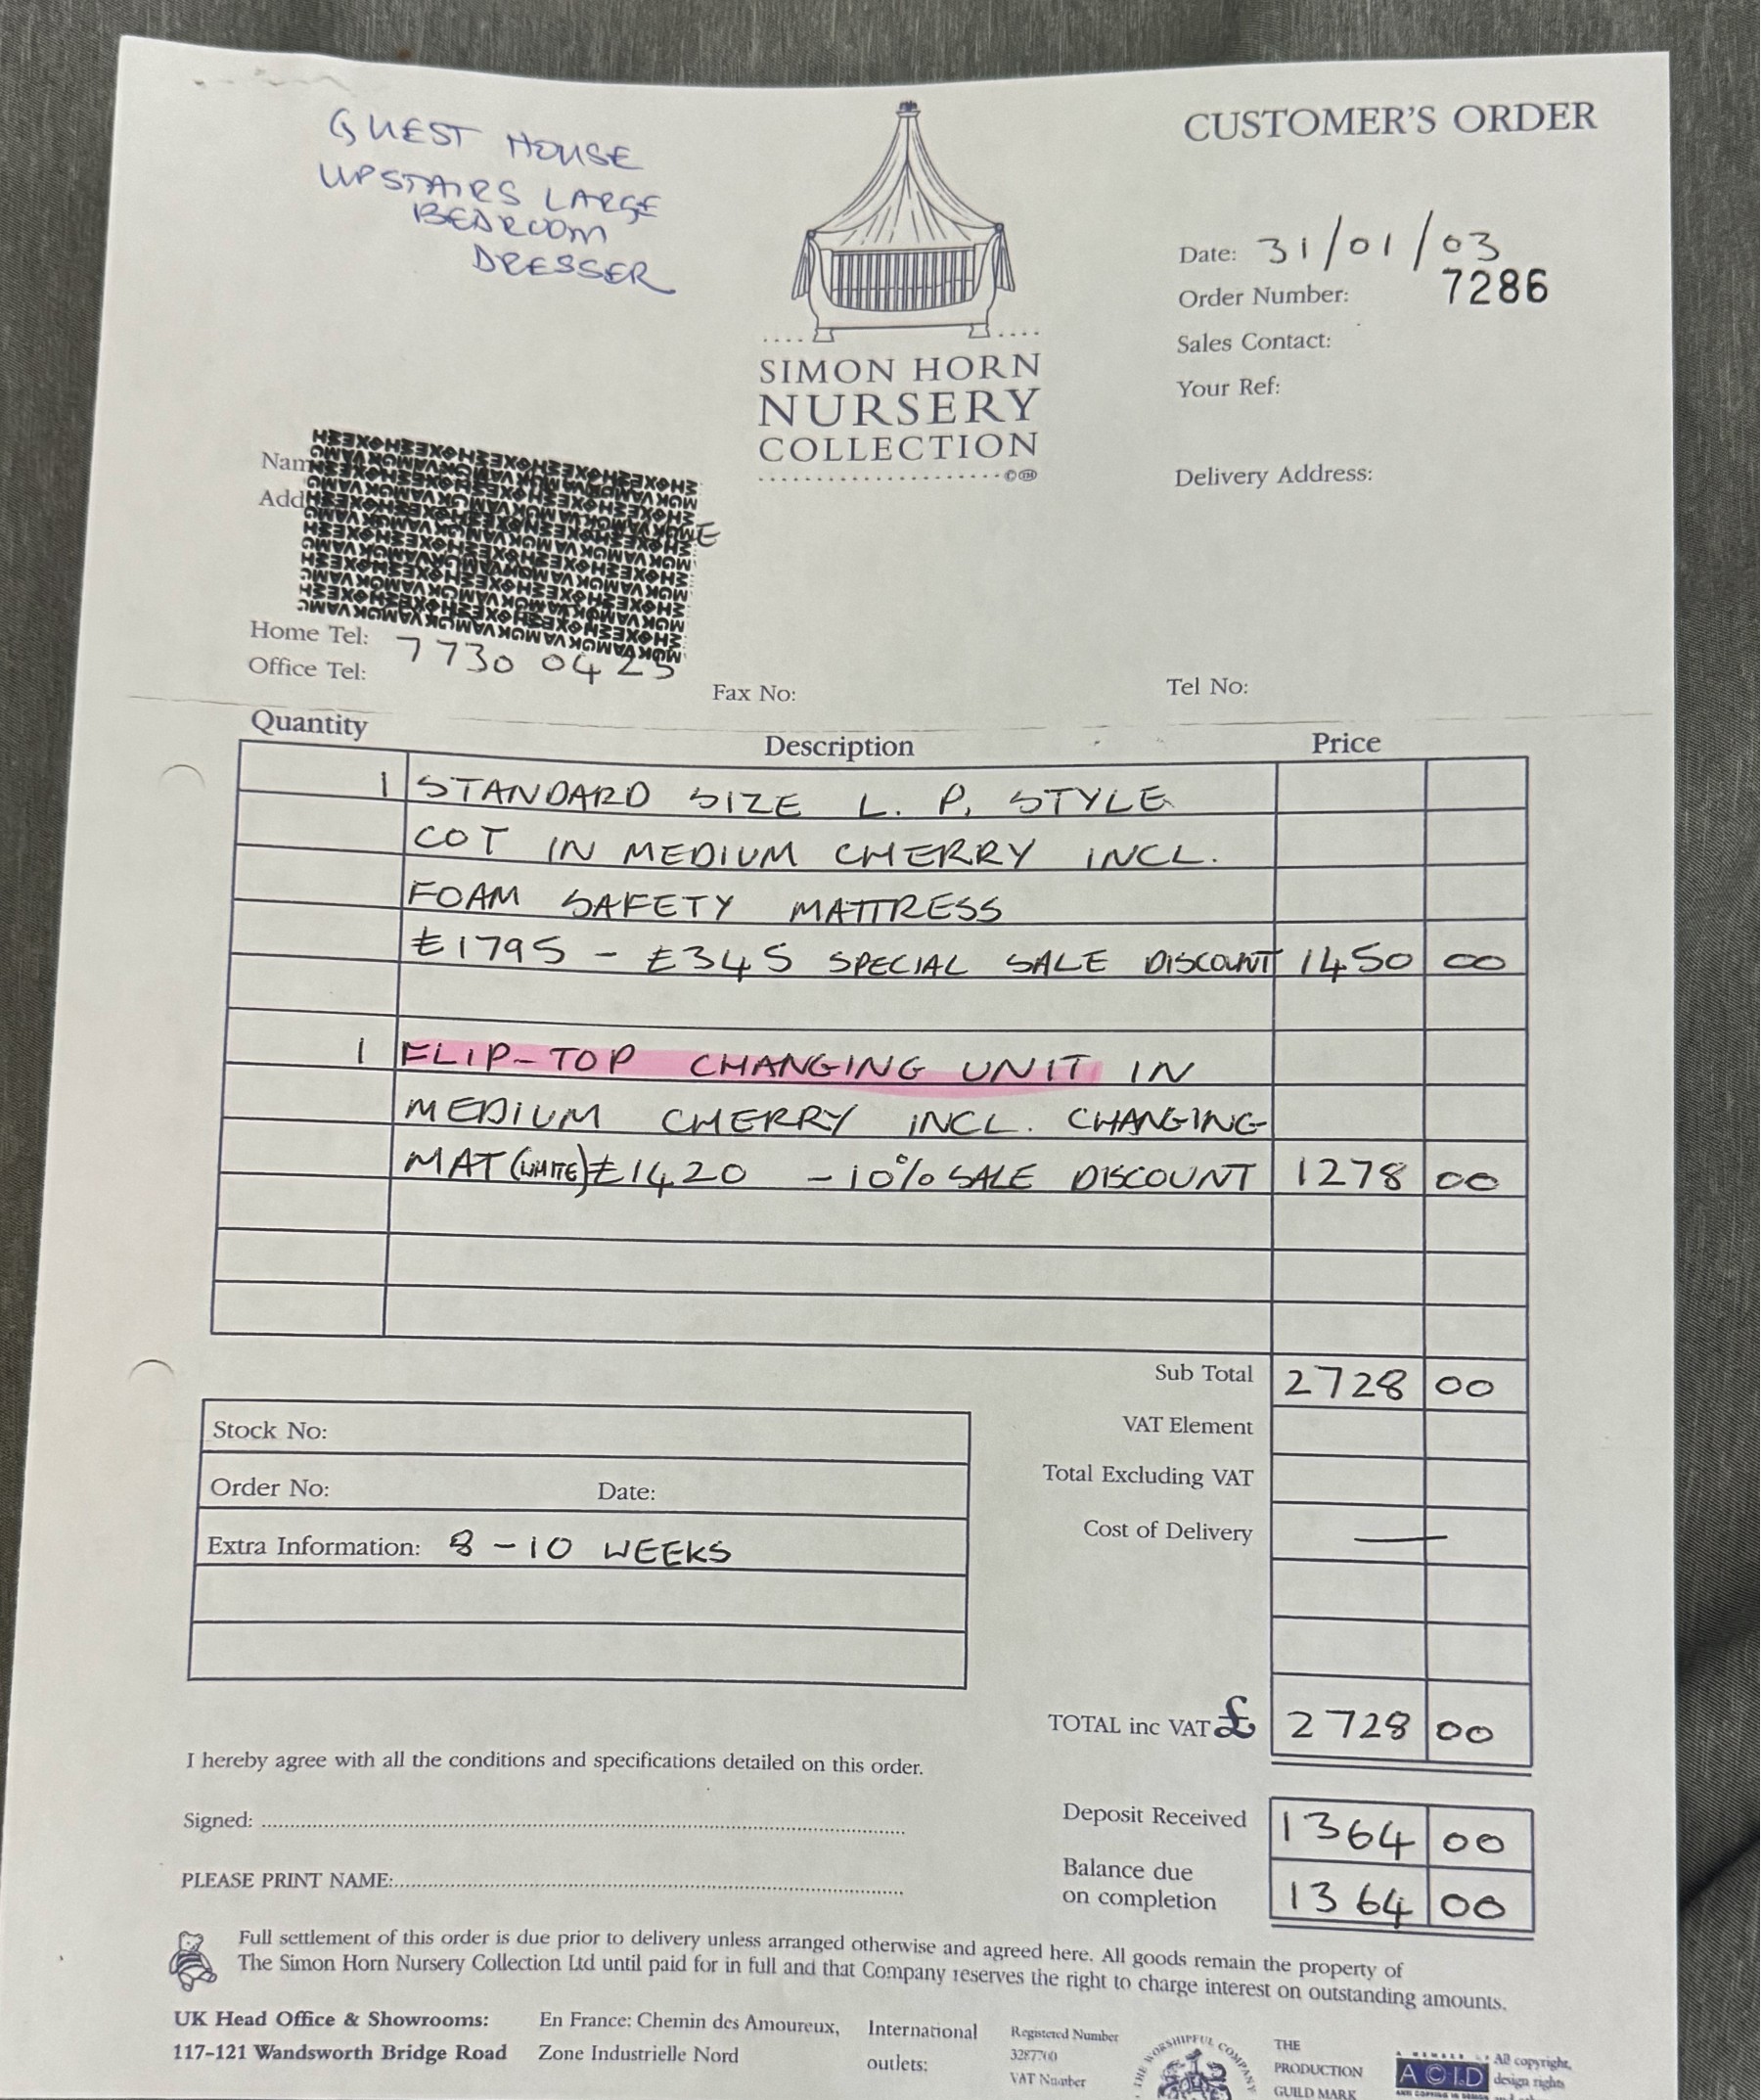 GUEST HOUSE
UPSTAIRS LARGE
BEDROOM
DRESSER
SIMON HORN
NURSERY
COLLECTION
©™
CUSTOMER'S ORDER
Date: 31/01/03
Order Number: 7286
Sales Contact:
Your Ref:
Delivery Address:
Home Tel: 7730 0425
Office Tel:
Fax No:
Tel No:
Quantity Description Price
1 STANDARD SIZE L. P. STYLE
COT IN MEDIUM CHERRY INCL.
FOAM SAFETY MATTRESS
£1795 - £345 SPECIAL SALE DISCOUNT 1450 00
1 FLIP-TOP CHANGING UNIT IN
MEDIUM CHERRY INCL. CHANGING
MAT (WHITE) £1420 - 10% SALE DISCOUNT 1278 00
Sub Total 2728 00
VAT Element
Total Excluding VAT
Cost of Delivery —
Stock No:
Order No: Date:
Extra Information: 8 - 10 WEEKS
TOTAL inc VAT £ 2728 00
I hereby agree with all the conditions and specifications detailed on this order.
Signed:
PLEASE PRINT NAME:
Deposit Received 1364 00
Balance due
on completion 1364 00
Full settlement of this order is due prior to delivery unless arranged otherwise and agreed here. All goods remain the property of
The Simon Horn Nursery Collection Ltd until paid for in full and that Company reserves the right to charge interest on outstanding amounts.
UK Head Office & Showrooms:
117-121 Wandsworth Bridge Road
En France: Chemin des Amoureux,
Zone Industrielle Nord
International
outlets:
Registered Number
3287700
VAT Number
THE WORSHIPFUL COMPANY
THE
PRODUCTION
GUILD MARK
A MEMBER
A©ID
ANTI COPYING IN DESIGN
All copyright,
design rights